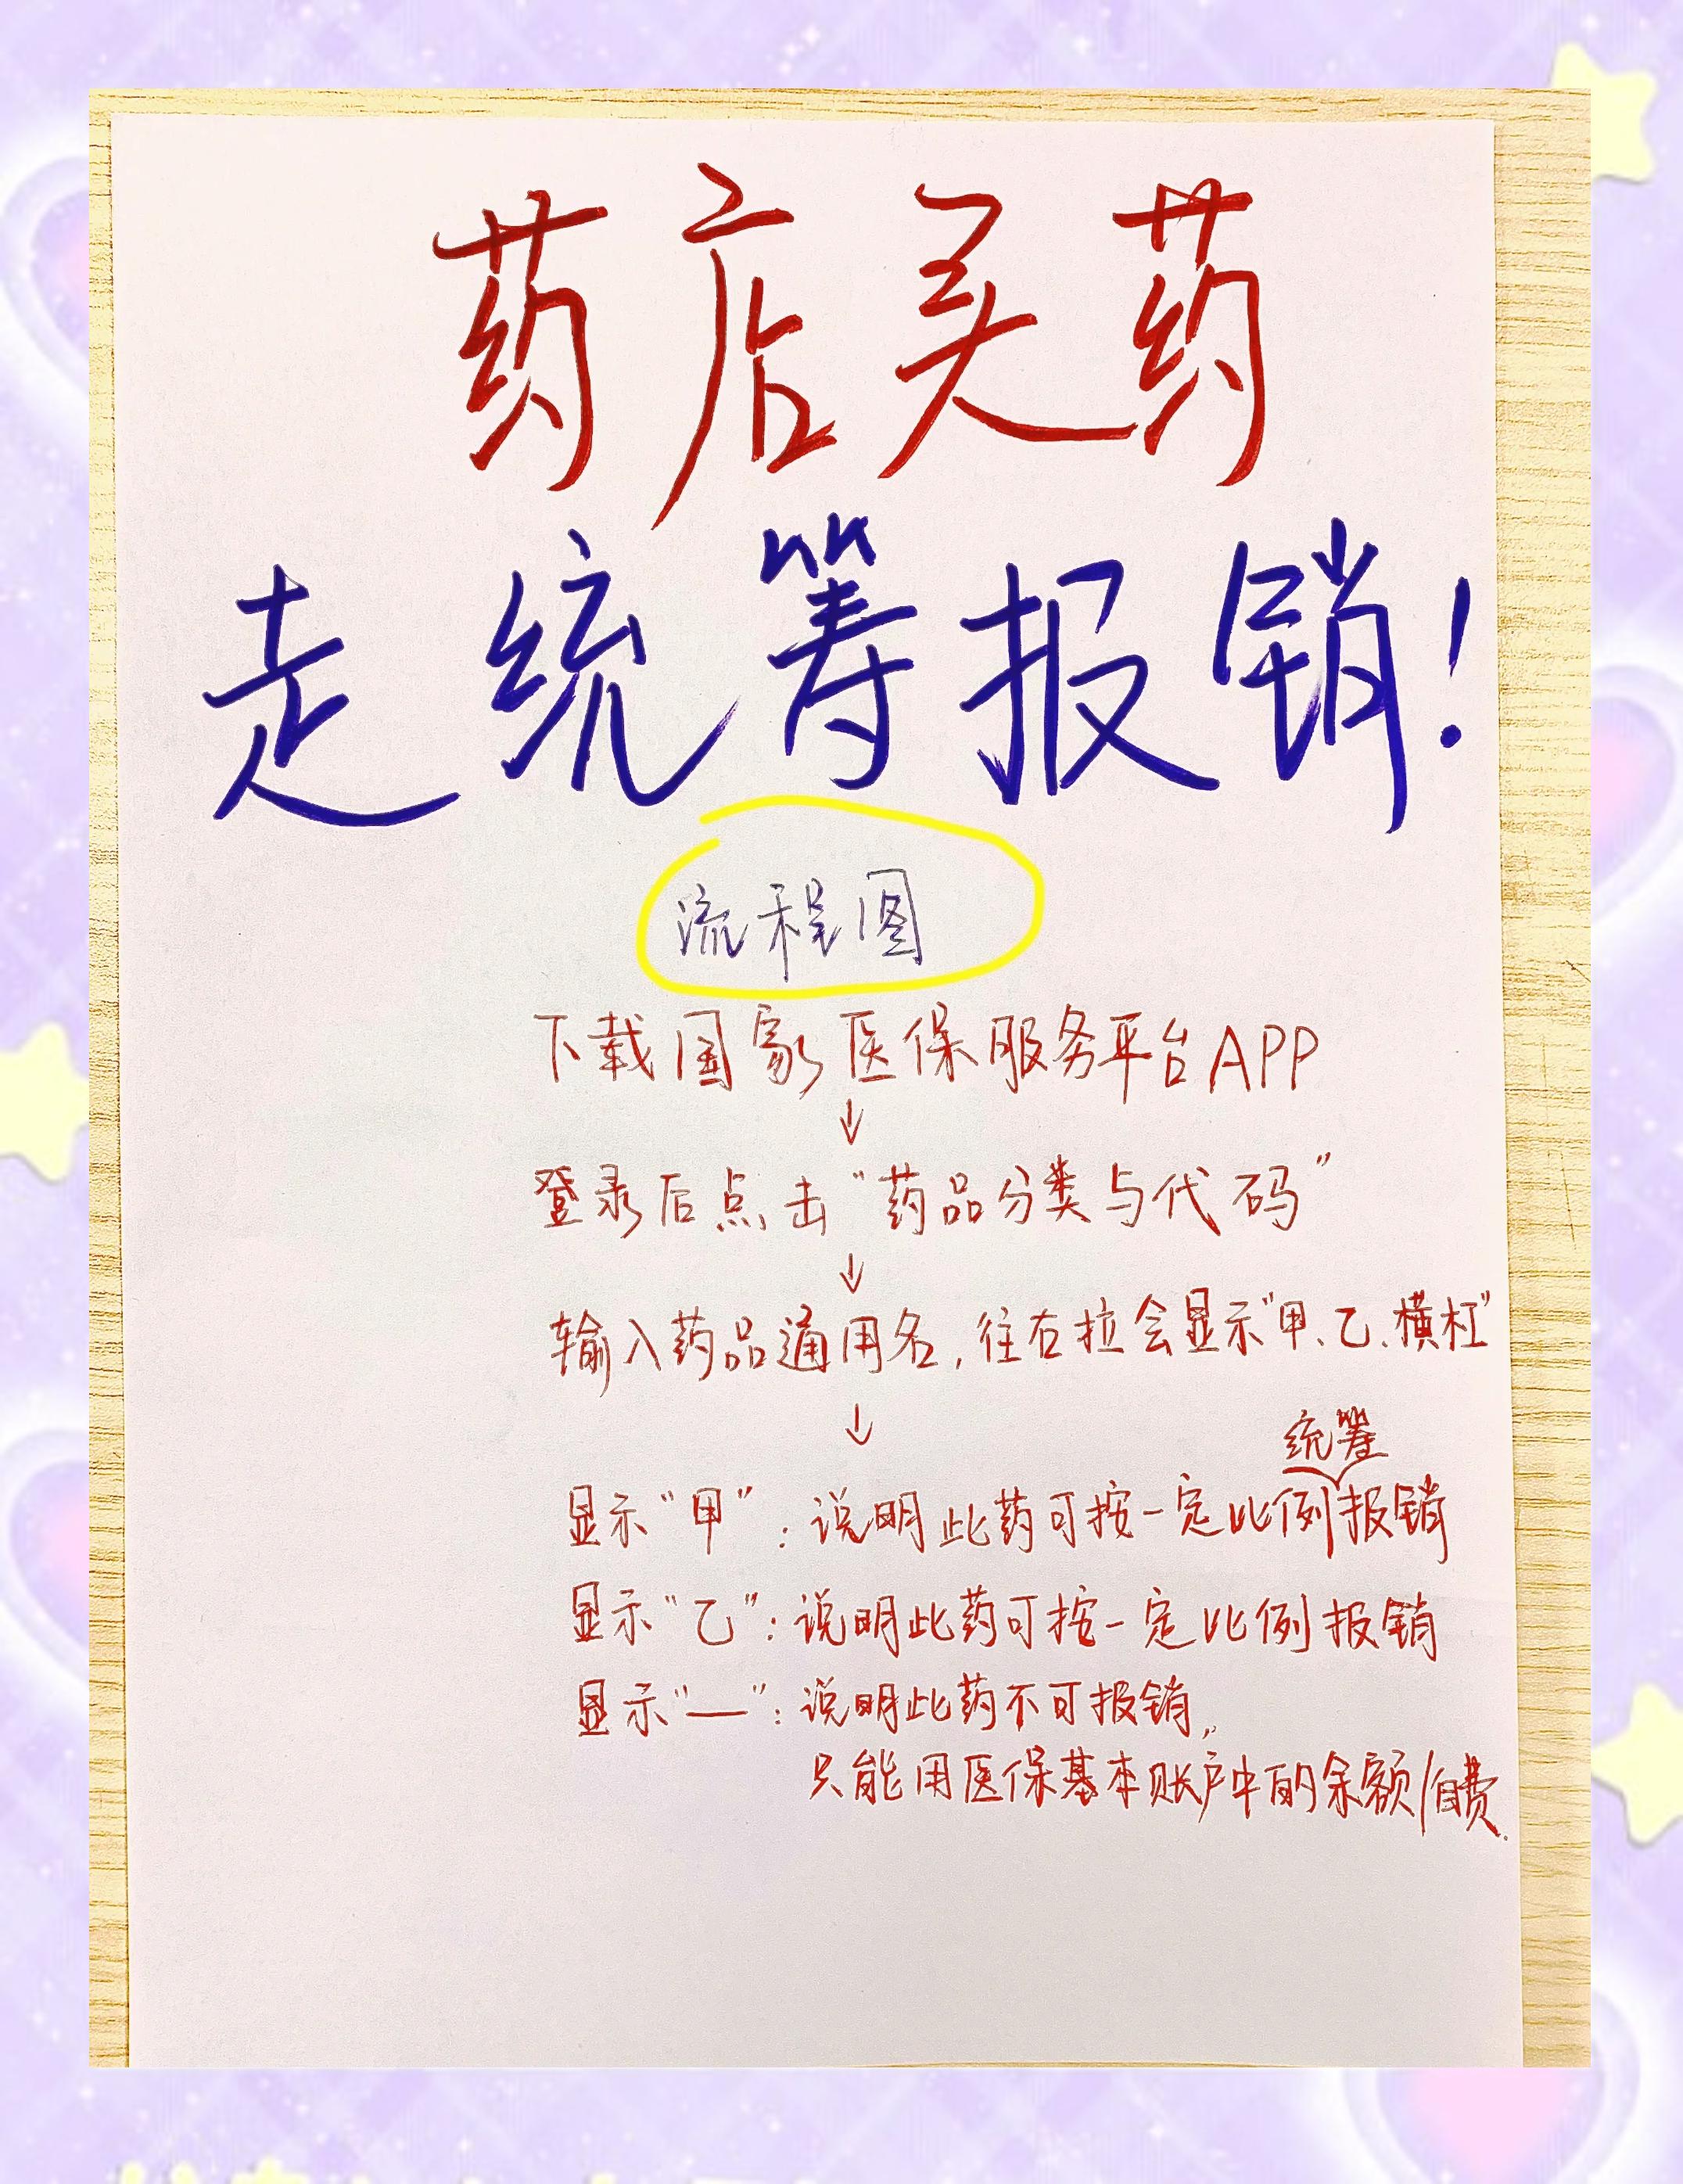 药店买药
走统筹报销!
流程图
下载国家医保服务平台APP
↓
登录后点击“药品分类与代码”
↓
输入药品通用名,往右拉会显示“甲、乙、横杠”
↓
统筹
显示“甲”:说明此药可按一定比例报销
显示“乙”:说明此药可按一定比例报销
显示“—”:说明此药不可报销,
只能用医保基本账户中的余额/自费.